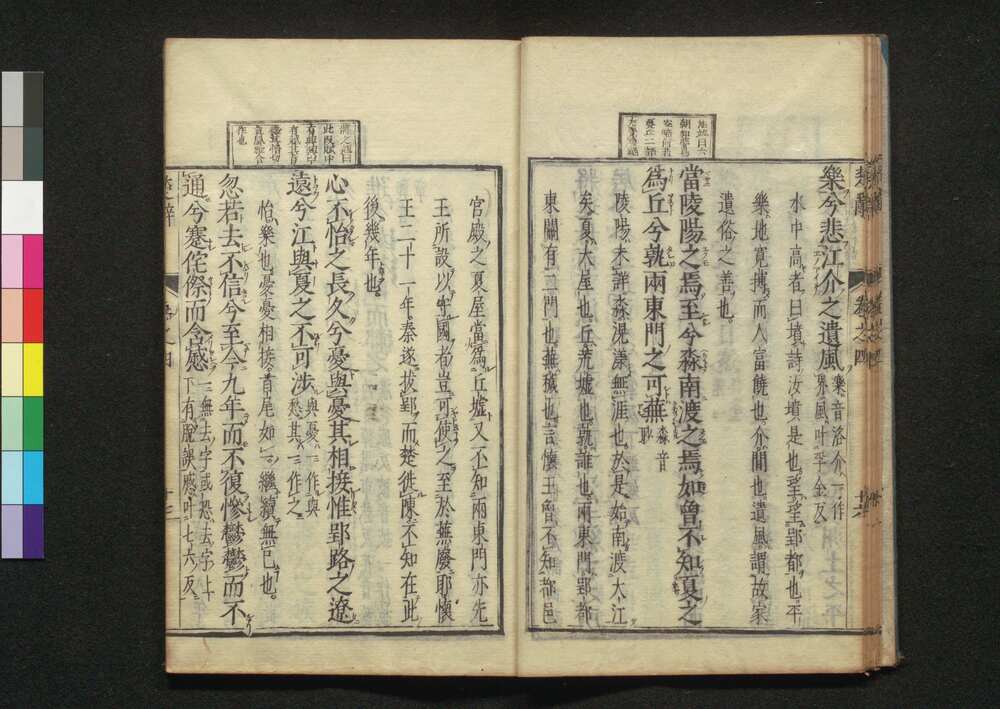 樂兮悲江介之遺風樂音洛介一作
界風叶孚金反
水中高者曰墳詩汝墳是也望望郢都也平
樂地寬博而人富饒也介間也遺風謂故家
遺俗之善也
當陵陽之焉至兮淼南渡之焉如曾不知夏之
爲丘兮孰兩東門之可蕪淼音
眇
陵陽未詳淼滉瀁無涯也於是始南渡大江
矣夏大屋也丘荒墟也孰誰也兩東門郢都
東關有二門也蕪穢也言懷王曾不知都邑
官殿之夏屋當爲丘墟又不知兩東門亦先
王所設以守國者豈可使之至於蕪廢耶懷
王二十一年秦遂拔郢而楚徙陳不知在此
後幾年也
心不怡之長久兮憂與憂其相接惟郢路之遼
遠兮江與夏之不可涉與憂一作與
愁其一作之
怡樂也憂憂相接首尾如一繼續無已也
忽若去不信兮至今九年而不復慘鬱鬱而不
通兮蹇侘傺而含慼一無去字或恐去字上
下有脫誤慼叶七六反